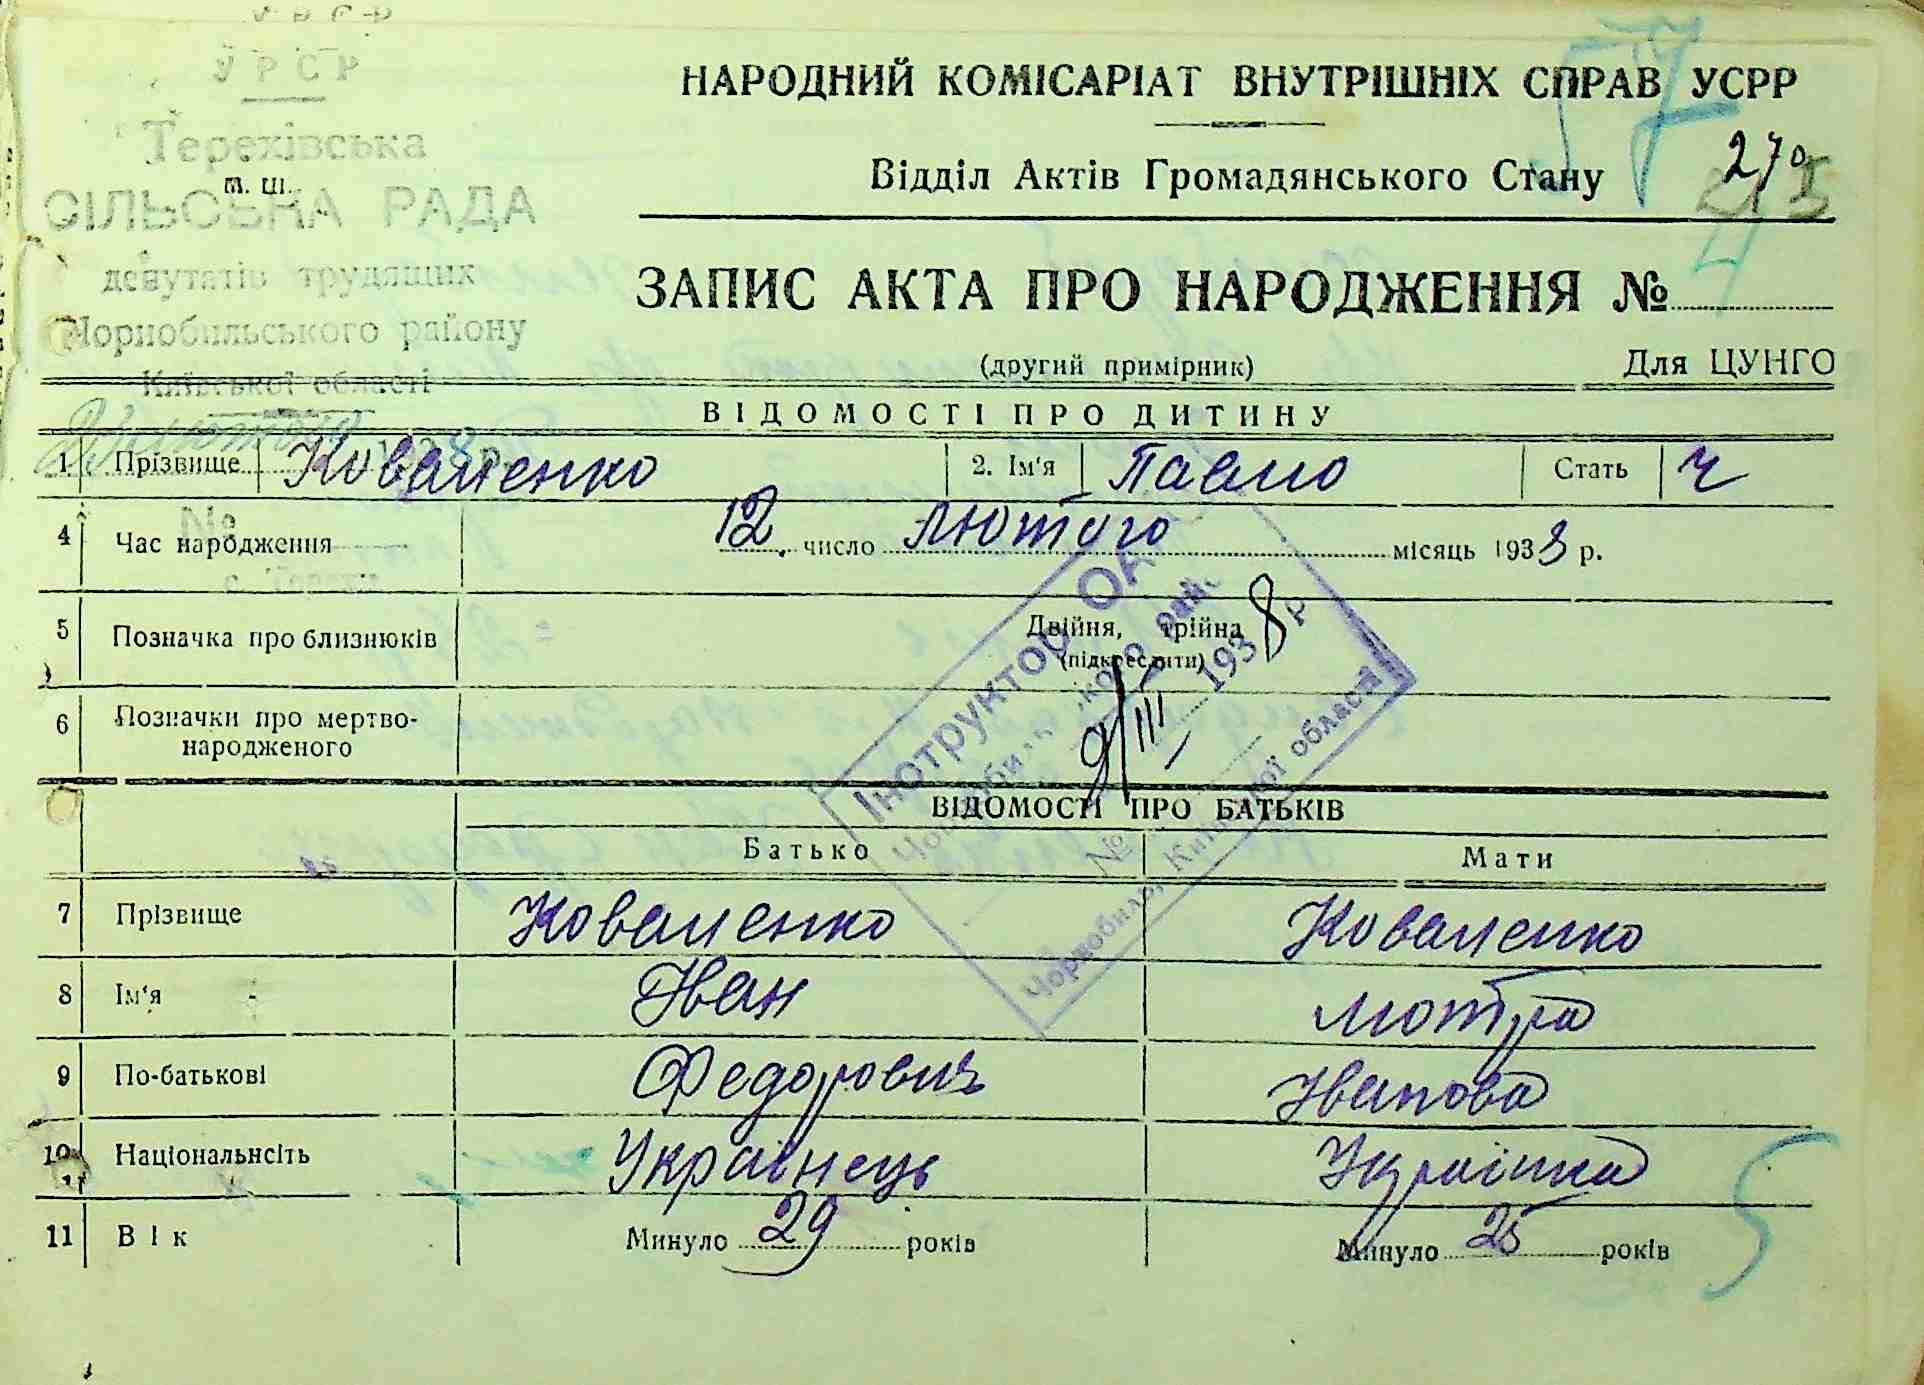 УРСР
Терехівська
СІЛЬСЬКА РАДА
депутатів трудящих
Чорнобильського району
Київської області
М. Ш.
НАРОДНИЙ КОМІСАРІАТ ВНУТРІШНІХ СПРАВ УСРР
Відділ Актів Громадянського Стану
57
ЗАПИС АКТА ПРО НАРОДЖЕННЯ №
(другий примірник) Для ЦУНГО
ВІДОМОСТІ ПРО ДИТИНУ
1 Прізвище Коваленко 2. Ім'я Павло Стать Ч
4 Час народження 12 число лютого місяць 1938 р.
5 Позначка про близнюків Двійня, трійна
(підкреслити)
6 Позначки про мертво-
народженого
Інструктор
9/III 1938 р
№
Чорнобиль, Київської області
ВІДОМОСТІ ПРО БАТЬКІВ
Батько Мати
7 Прізвище Коваленко Коваленко
8 Ім'я Іван Мотря
9 По-батькові Федорович Іванова
10 Національнсіть Українець Українка
11 Вік Минуло 29 років Минуло 25 років
5